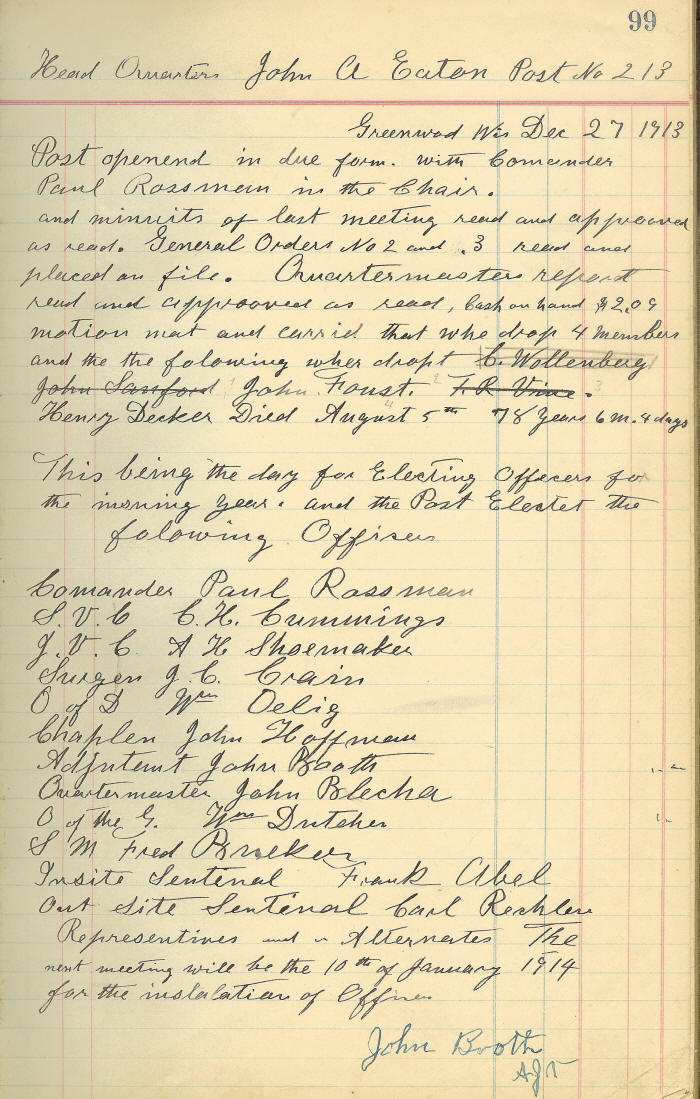 99
Head Quarters John A Eaton Post No 213
Greenwod Wis Dec 27 1913
Post openend in due form. with Comander
Paul Rossman in the Chair.
and minuits of last meeting read and approoved
as read. General Orders No 2 and .3 read and
placed on file. Quartermasters report
read and approoved as read, Cash on hand $2.09
motion mat and carrid that whe drop 4 members
and the the folowing wher dropt C. Wollenberg
John Sanford 1 John Foust. 2 F.R. Vine. 3
Henry Decker Died August 5th 78 Years 6 m. 4 days
4
This being the day for Electing Officers for
the insning year. and the Post Electet the
folowing Offisers
Comander Paul Rossman
S. V. C C. H. Cummings
J. V. C. A H Shoemaker
Surgen J. C. Crain
O of D Wm Oelig
Chaplen John Hoffman
Adjutemt John Booth
Quartermaster John Blecha
O of the G. Wm Dutcher
S M Fred
Insite Sentenal Frank Abel
Out Site Sentenal Carl
Representives and Alternates The
next meeting will be the 10th of January 1914
for the instalation of Offisers
John Booth
AJT